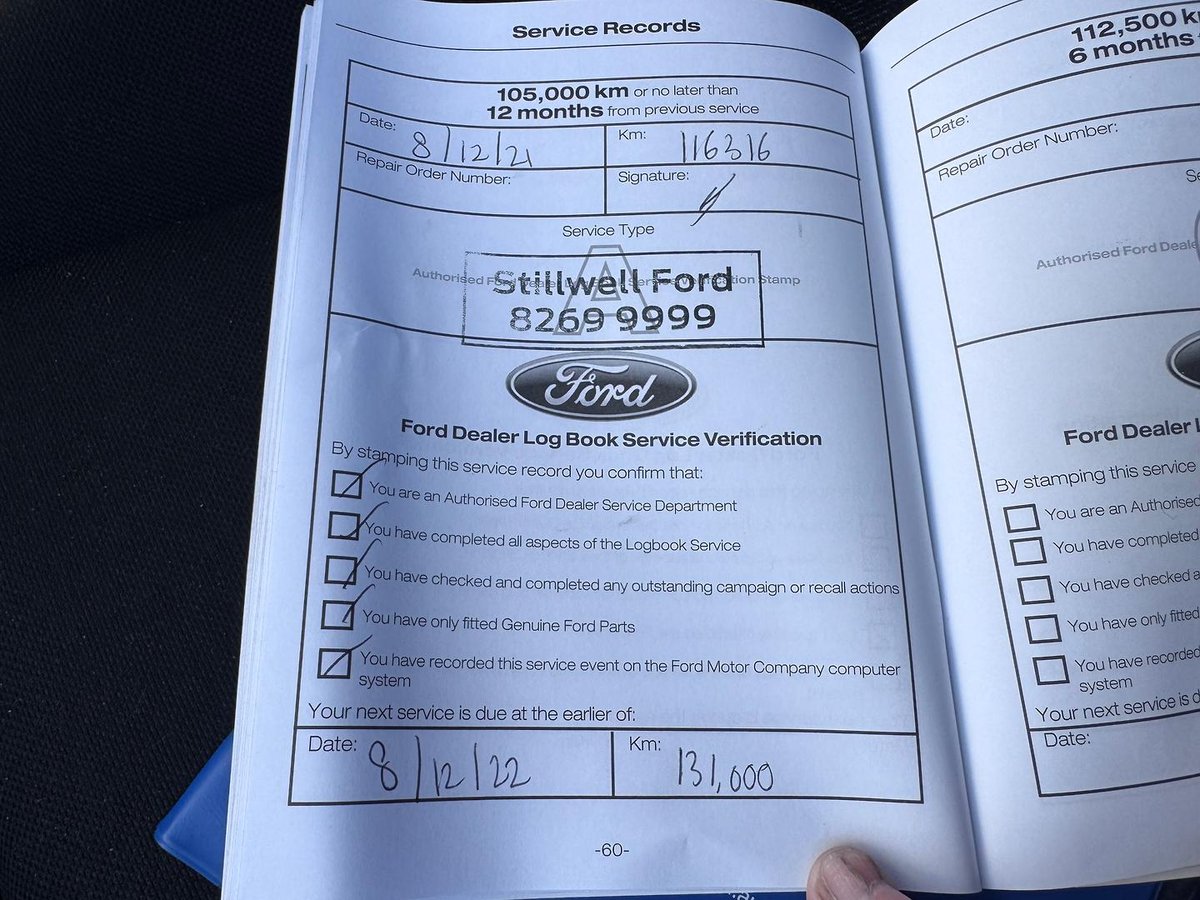 Service Records
105,000 km or no later than
12 months from previous service
Date: 8/12/21
Km: 116316
Repair Order Number:
Signature:
Service Type
A
Authorised Ford Dealer Service Verification Stamp
Stillwell Ford
8269 9999
Ford
Ford Dealer Log Book Service Verification
By stamping this service record you confirm that:
You are an Authorised Ford Dealer Service Department
You have completed all aspects of the Logbook Service
You have checked and completed any outstanding campaign or recall actions
You have only fitted Genuine Ford Parts
You have recorded this service event on the Ford Motor Company computer
system
Your next service is due at the earlier of:
Date: 8/12/22
Km: 131,000
-60-
112,500 k
6 months
Date:
Repair Order Number:
Se
Authorised Ford Deale
Ford Dealer L
By stamping this service
You are an Authorised
You have completed
You have checked a
You have only fitted
You have recorded
system
Your next service is d
Date: